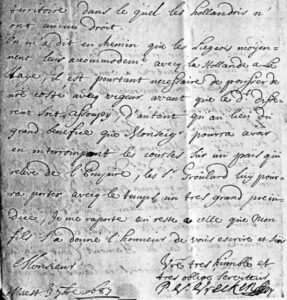 territoire dans le quel les hollandois n'
ont aucun droit.
On m'a dit en chemin que les Liegeois moyen
nent leur accommodemt avecq la Hollande a la
haije, il est pourtant necessaire de pousser de
nre costé avec vigeur, avant que le differ
rent soit assoupy d'autant qu'au lieu du
grand benefice que Monseigr pourra avoir
en interrompant les courses sur un pais qui
releve de l'Empire, les Sr Groulard luy pour
ra porter avecq le temps un tres grand preiu
dice. Je me raporte en reste a celle que mon
fils s'a donné l'honneur de vous escrire et suis
Monsieur
Vre tres humble et
tres oblige serviteur